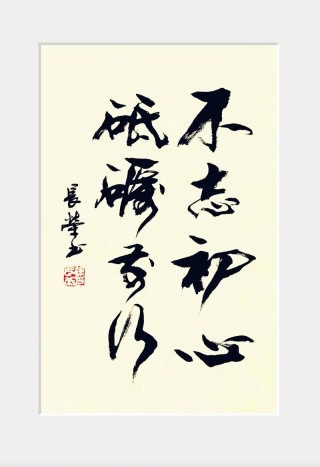 不忘初心
砥礪前行
長榮书